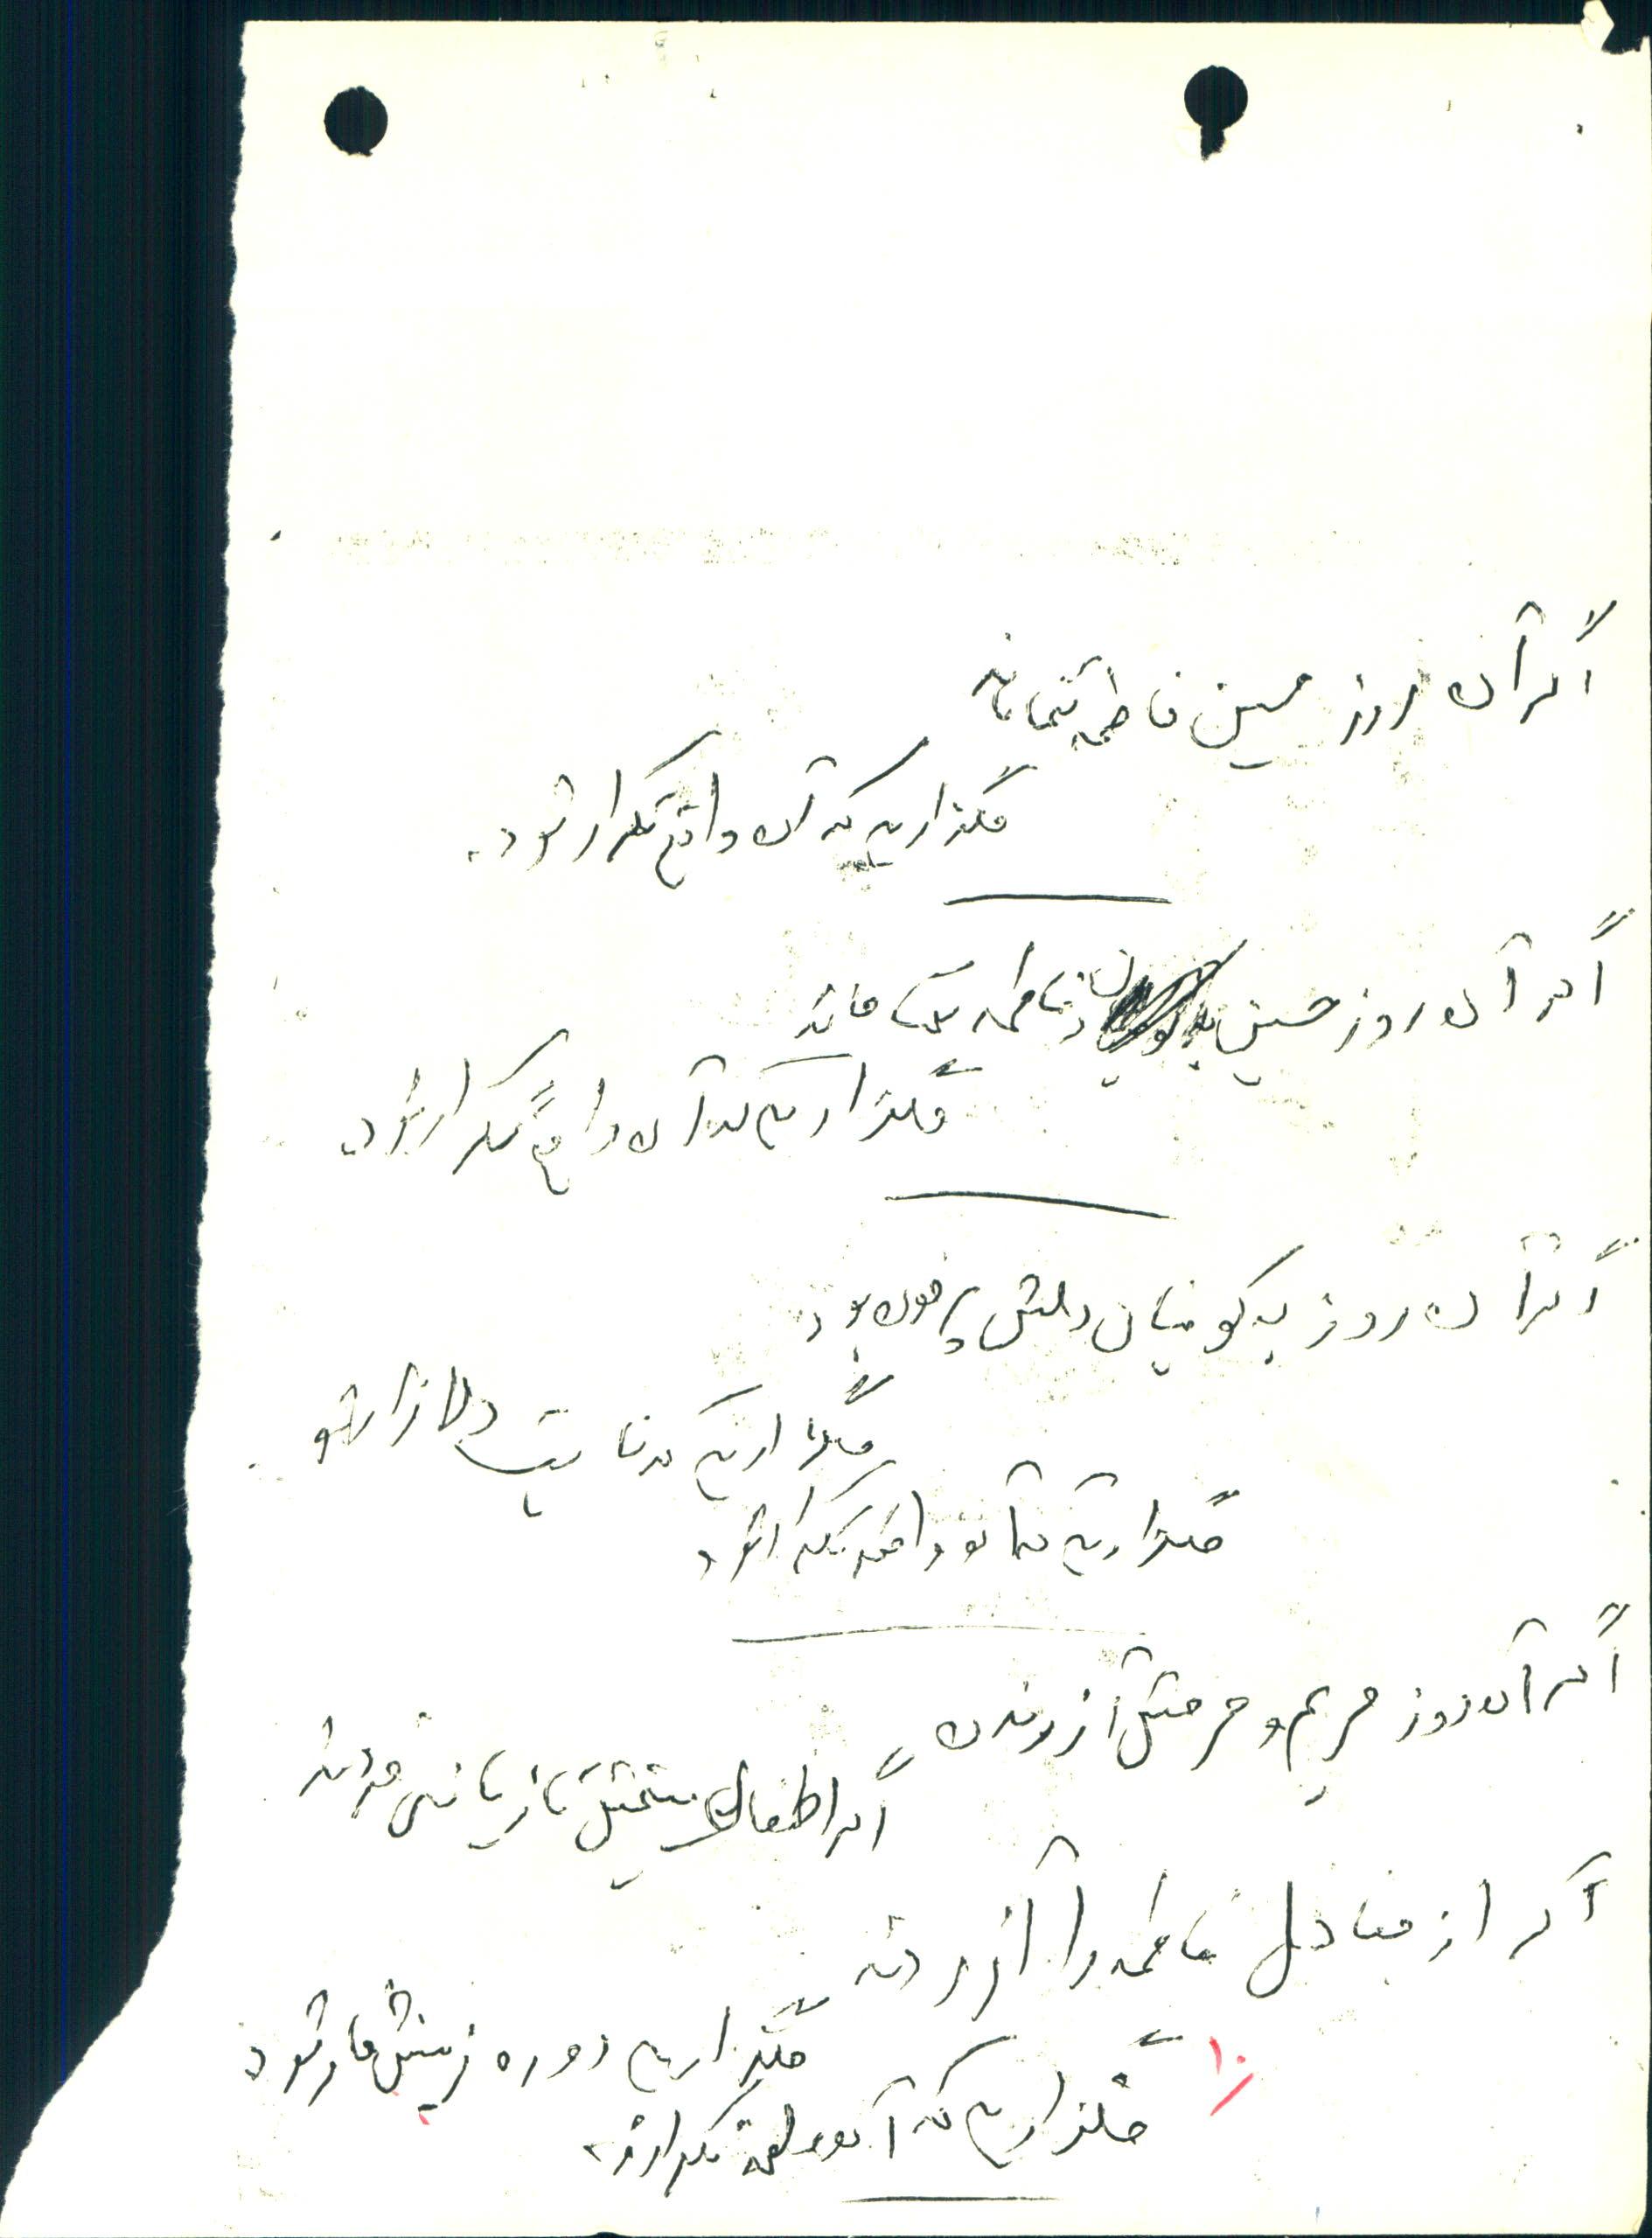 اگر آن روز حسین فاطمه تنها ماند
مگذارید که آن واقعه تکرار شود.
اگر آن روز حسین فاطمه تنها ماند
مگذاریم که آن واقعه تکرار شود
اگر آن روز ز کوفیان دلش پر خون بود
مگذاریم که نایب
مگذاریم که آن واقعه تکرار شود
اگر آن روز حریم و حرمتش آزردند
اگر اطفال یتیمش تازیانه می‌خوردند
اگر از جفا دل فاطمه را آزردند
مگذاریم دوباره زینبش خار شود
۱۰
مگذاریم که آن واقعه تکرار شود